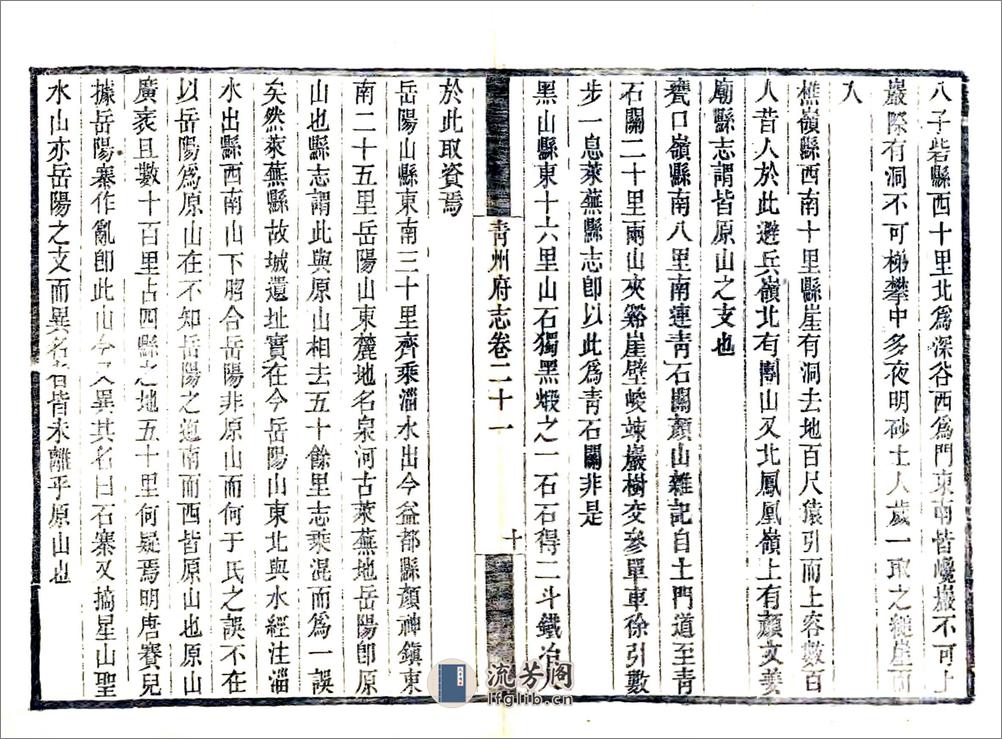 八子砦縣西十里北爲深谷西爲門東南皆巉巖不可上
巖際有洞不可梯攀中多夜明砂土人歲一取之縋崖而
入
樵嶺縣西南十里縣崖有洞去地百尺猿引而上容數百
人昔人於此避兵嶺北有團山又北鳳凰嶺上有顏文姜
廟縣志謂皆原山之支也
甕口嶺縣南八里南連青石關顏山雜記自土門道至青
石關二十里兩山夾谿崖壁峻竦巖樹交參單車徐引數
步一息萊蕪縣志卽以此爲青石關非是
黑山縣東十六里山石獨黑煅之一石石得二斗鐵冶
青州府志卷二十一
十
於此取資焉
岳陽山縣東南三十里齊乘淄水出今益都縣顏神鎭東
南二十五里岳陽山東麓地名泉河古萊蕪地岳陽卽原
山也縣志謂此與原山相去五十餘里志乘混而爲一誤
矣然萊蕪縣故城遺址實在今岳陽山東北與水經注淄
水出縣西南山下脗合岳陽非原山而何于氏之誤不在
以岳陽爲原山在不知岳陽之迤南而西皆原山也原山
廣袤且數十百里占四縣之地五十里何疑焉明唐賽兒
據岳陽寨作亂卽此山今又異其名曰石寨又摘星山聖
水山亦岳陽之支而異名者皆未離乎原山也
流芳阁
lfglib.cn